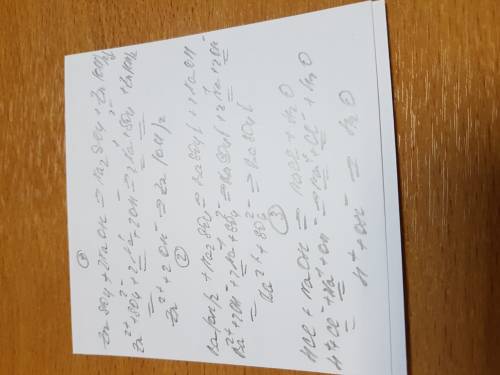 ①
ZnSO4 + 2NaOH = Na2SO4 + Zn(OH)2
Zn2+ + SO4 2- + 2Na+ + 2OH- = 2Na+ + SO4 2- + Zn(OH)2
Zn2+ + 2OH- = Zn(OH)2
②
Ba(OH)2 + Na2SO4 = BaSO4↓ + 2NaOH
Ba2+ + 2OH- + 2Na+ + SO4 2- = BaSO4↓ + 2Na+ + 2OH-
Ba2+ + SO4 2- = BaSO4↓
③
HCl + NaOH = NaCl + H2O
H+ + Cl- + Na+ + OH- = Na+ + Cl- + H2O
H+ + OH- = H2O